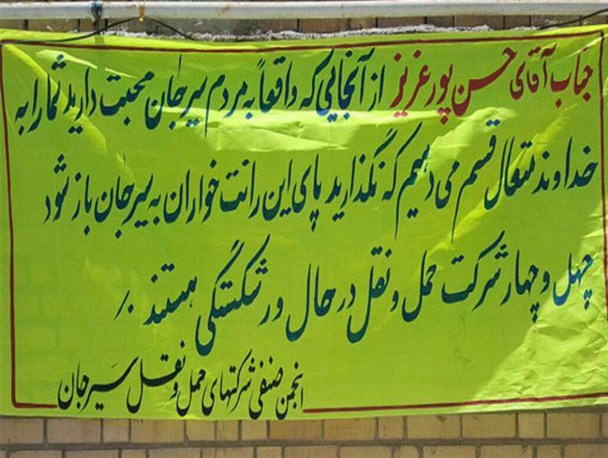 جناب آقای حسن پور عزیز از آنجایی که واقعاً به مردم سیرجان محبت دارید شما را به
خداوند متعال قسم می دهیم که نگذارید پای این رانت خواران به سیرجان باز شود
چهل و چهار شرکت حمل و نقل در حال ورشکستگی هستند ./
انجمن صنفی شرکتهای حمل و نقل سیرجان